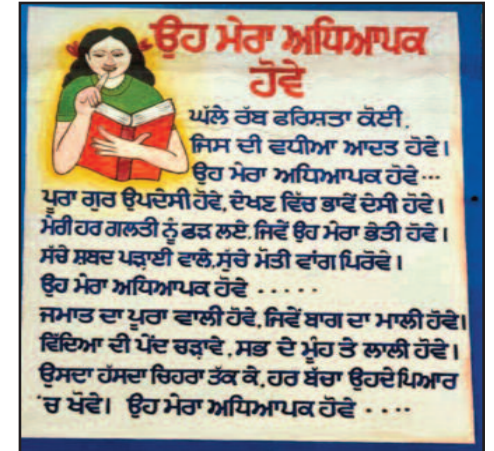 ਉਹ ਮੇਰਾ ਅਧਿਆਪਕ
ਹੋਵੇ
ਘੱਲੇ ਰੱਬ ਫਰਿਸ਼ਤਾ ਕੋਈ.
ਜਿਸ ਦੀ ਵਧੀਆ ਆਦਤ ਹੋਵੇ।
ਉਹ ਮੇਰਾ ਅਧਿਆਪਕ ਹੋਵੇ ...
ਪੂਰਾ ਗੁਰ ਉਪਦੇਸੀ ਹੋਵੇ, ਦੇਖਣ ਵਿੱਚ ਭਾਵੇਂ ਦੇਸੀ ਹੋਵੇ।
ਮੇਰੀ ਹਰ ਗਲਤੀ ਨੂੰ ਫੜ ਲਏ, ਜਿਵੇਂ ਉਹ ਮੇਰਾ ਭੇਤੀ ਹੋਵੇ।
ਸੱਚੇ ਸ਼ਬਦ ਪੜ੍ਹਾਈ ਵਾਲੇ, ਸੁੱਚੇ ਮੋਤੀ ਵਾਂਗ ਪਿਰੋਵੇ।
ਉਹ ਮੇਰਾ ਅਧਿਆਪਕ ਹੋਵੇ .....
ਜਮਾਤ ਦਾ ਪੂਰਾ ਵਾਲੀ ਹੋਵੇ, ਜਿਵੇਂ ਬਾਗ ਦਾ ਮਾਲੀ ਹੋਵੇ।
ਵਿੱਦਿਆ ਦੀ ਪੌਂਦ ਚੜਾਵੇ, ਸਭ ਦੇ ਮੂੰਹ ਤੇ ਲਾਲੀ ਹੋਵੇ।
ਉਸਦਾ ਹੱਸਦਾ ਚਿਹਰਾ ਤੱਕ ਕੇ, ਹਰ ਬੱਚਾ ਉਹਦੇ ਪਿਆਰ
'ਚ ਖੋਵੇ। ਉਹ ਮੇਰਾ ਅਧਿਆਪਕ ਹੋਵੇ ....